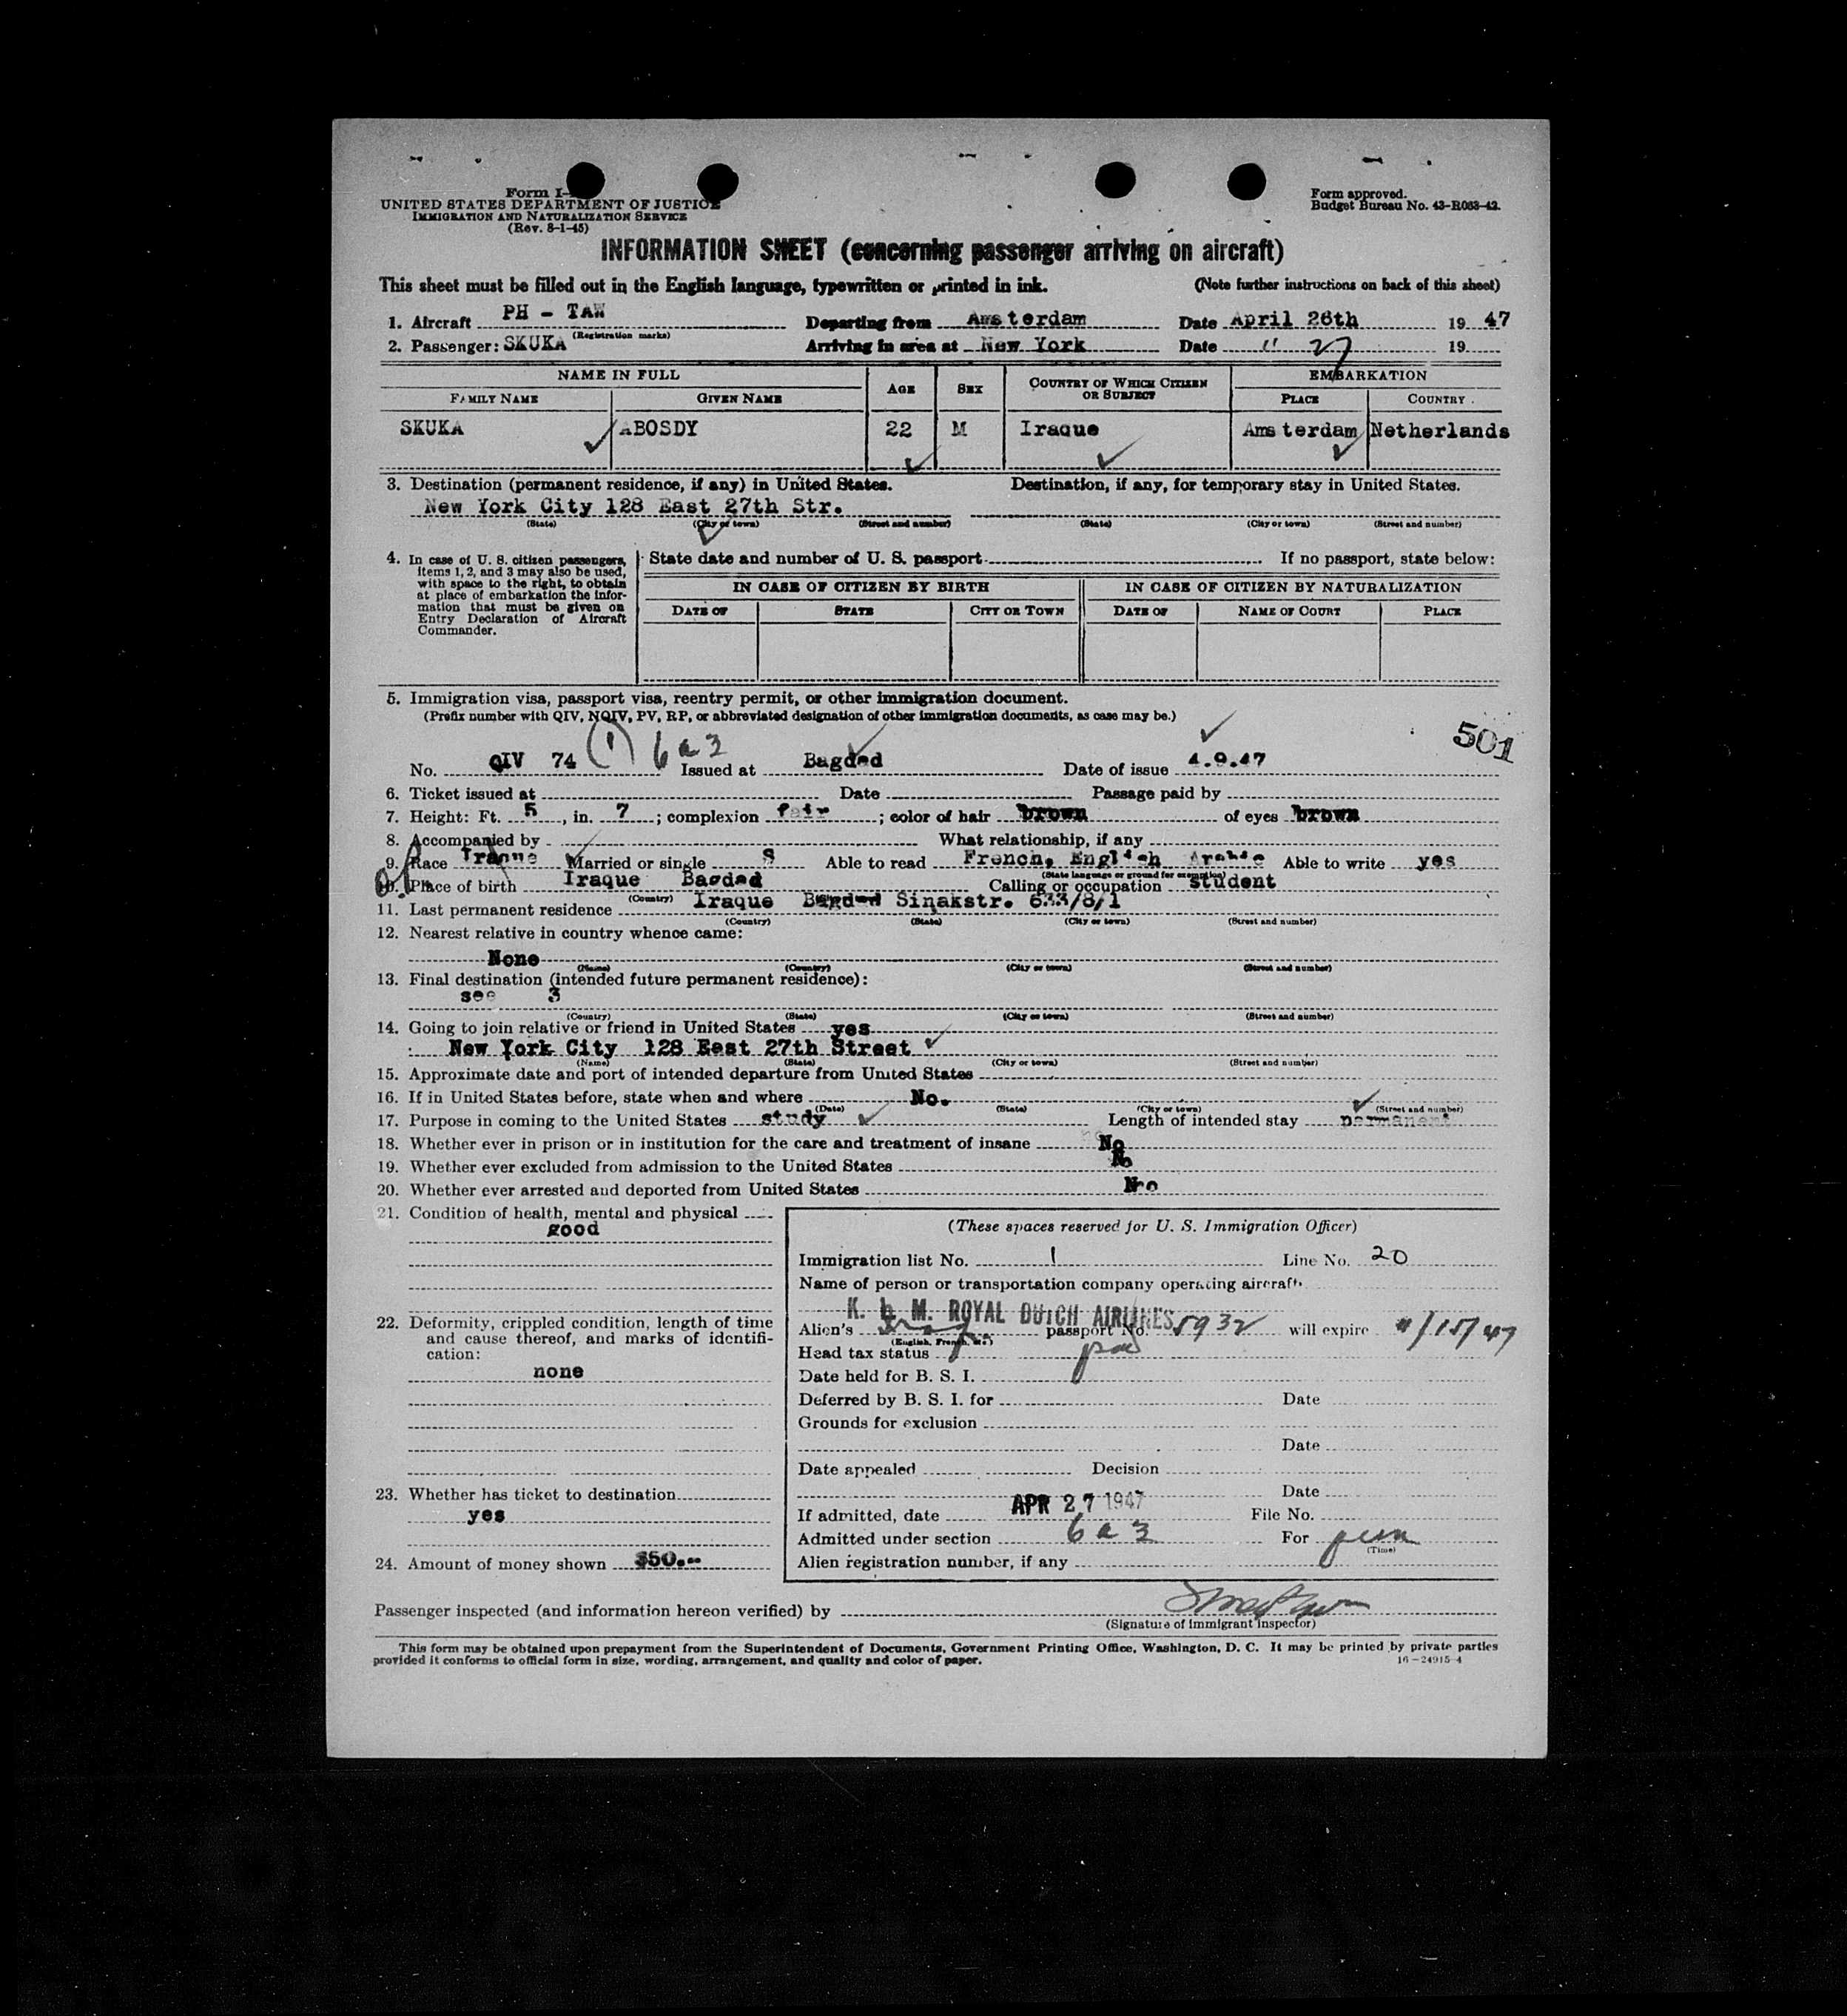 Form I-
UNITED STATES DEPARTMENT OF JUSTICE
IMMIGRATION AND NATURALIZATION SERVICE
(Rev. 8-1-45)
Form approved.
Budget Bureau No. 43-R063-42.
INFORMATION SHEET (concerning passenger arriving on aircraft)
This sheet must be filled out in the English language, typewritten or printed in ink. (Note further instructions on back of this sheet)
1. Aircraft PH - TAW Departing from Amsterdam Date April 26th 19 47
(Registration marks)
2. Passenger: SKUKA Arriving in area at New York Date " 27 19
NAME IN FULL AGE SEX COUNTRY OF WHICH CITIZEN OR SUBJECT EMBARKATION
FAMILY NAME GIVEN NAME PLACE COUNTRY
SKUKA ABOSDY 22 M Iraque Amsterdam Netherlands
3. Destination (permanent residence, if any) in United States. Destination, if any, for temporary stay in United States.
New York City 128 East 27th Str.
(State) (City or town) (Street and number) (State) (City or town) (Street and number)
4. In case of U. S. citizen passengers, items 1, 2, and 3 may also be used, with space to the right, to obtain at place of embarkation the information that must be given on Entry Declaration of Aircraft Commander.
State date and number of U. S. passport If no passport, state below:
IN CASE OF CITIZEN BY BIRTH IN CASE OF CITIZEN BY NATURALIZATION
DATE OF STATE CITY OR TOWN DATE OF NAME OF COURT PLACE
5. Immigration visa, passport visa, reentry permit, or other immigration document.
(Prefix number with QIV, NQIV, PV, RP, or abbreviated designation of other immigration documents, as case may be.)
501
(1) 6 a 3
No. QIV 74 Issued at Bagdad Date of issue 4.9.47
6. Ticket issued at Date Passage paid by
7. Height: Ft. 5, in. 7; complexion fair; color of hair brown of eyes brown
8. Accompanied by What relationship, if any
9. Race Iraque Married or single S Able to read French, English Arabic Able to write yes
(State language or ground for exemption)
10. Place of birth Iraque Bagdad Calling or occupation student
(Country)
11. Last permanent residence Iraque Bagdad Sinakstr. 633/8/1
(Country) (State) (City or town) (Street and number)
12. Nearest relative in country whence came:
None
(Name) (Country) (City or town) (Street and number)
13. Final destination (intended future permanent residence):
see 3
(Country) (State) (City or town) (Street and number)
14. Going to join relative or friend in United States yes
New York City 128 East 27th Street
(Name) (State) (City or town) (Street and number)
15. Approximate date and port of intended departure from United States
16. If in United States before, state when and where No.
(Date) (State) (City or town) (Street and number)
17. Purpose in coming to the United States study Length of intended stay permanent
18. Whether ever in prison or in institution for the care and treatment of insane No
19. Whether ever excluded from admission to the United States No
20. Whether ever arrested and deported from United States No
21. Condition of health, mental and physical
good
22. Deformity, crippled condition, length of time and cause thereof, and marks of identification:
none
23. Whether has ticket to destination
yes
24. Amount of money shown $50.--
(These spaces reserved for U. S. Immigration Officer)
Immigration list No. 1 Line No. 20
Name of person or transportation company operating aircraft
K. L. M. ROYAL DUTCH AIRLINES
Alien's Iraq passport No. 5932 will expire 4/15/47
(English, French, etc.)
Head tax status pd
Date held for B. S. I.
Deferred by B. S. I. for Date
Grounds for exclusion
Date
Date appealed Decision
Date
If admitted, date APR 27 1947 File No.
Admitted under section 6 a 3 For perm
(Time)
Alien registration number, if any
Passenger inspected (and information hereon verified) by
(Signature of immigrant inspector)
This form may be obtained upon prepayment from the Superintendent of Documents, Government Printing Office, Washington, D. C. It may be printed by private parties
provided it conforms to official form in size, wording, arrangement, and quality and color of paper. 16-24915-4